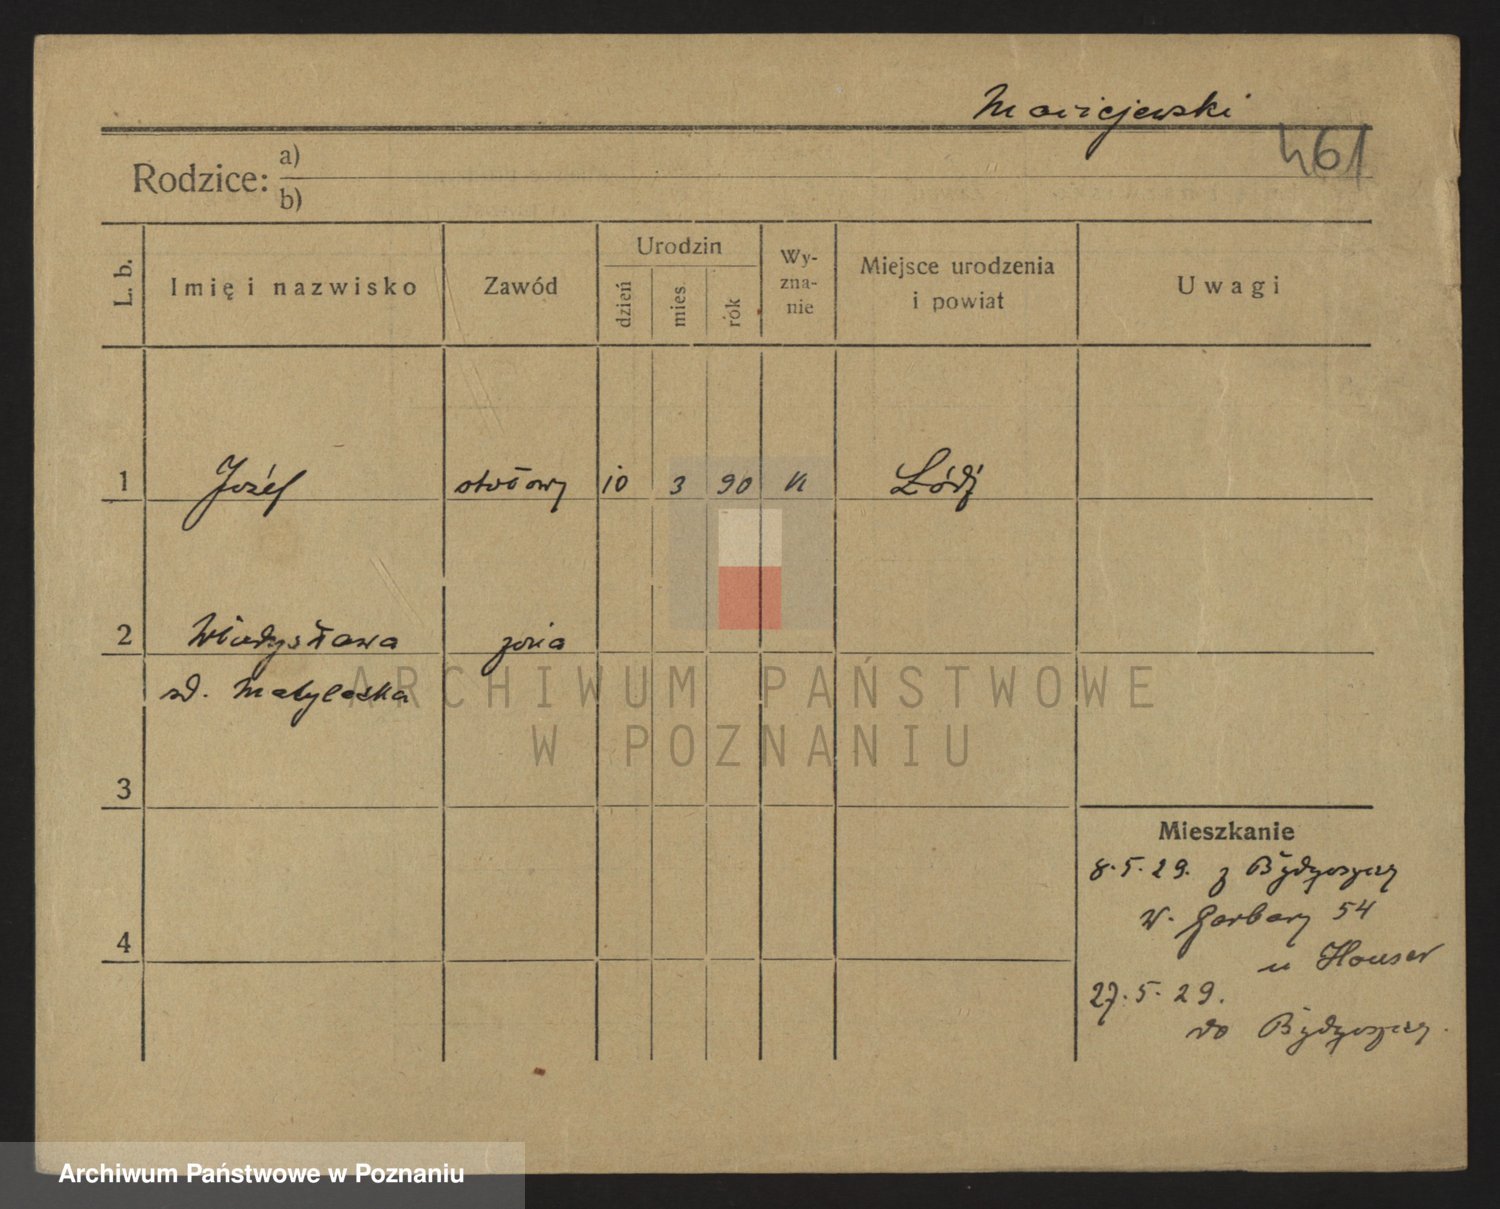 Maciejewski
461
Rodzice: a)
b)
L. b. Imię i nazwisko Zawód Urodzin dzień mies. rok Wy-zna-nie Miejsce urodzenia i powiat Uwagi
1 Józef stołowy 10 3 90 k Łódź
2 Władysława żona
zd. Matylaska
3
Mieszkanie
8.5.29. z Bydgoszczy
W. Garbary 54
4
u Hauser
27.5.29.
do Bydgoszczy.
ARCHIWUM PAŃSTWOWE
W POZNANIU
Archiwum Państwowe w Poznaniu